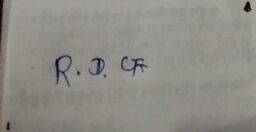 R. D. CF